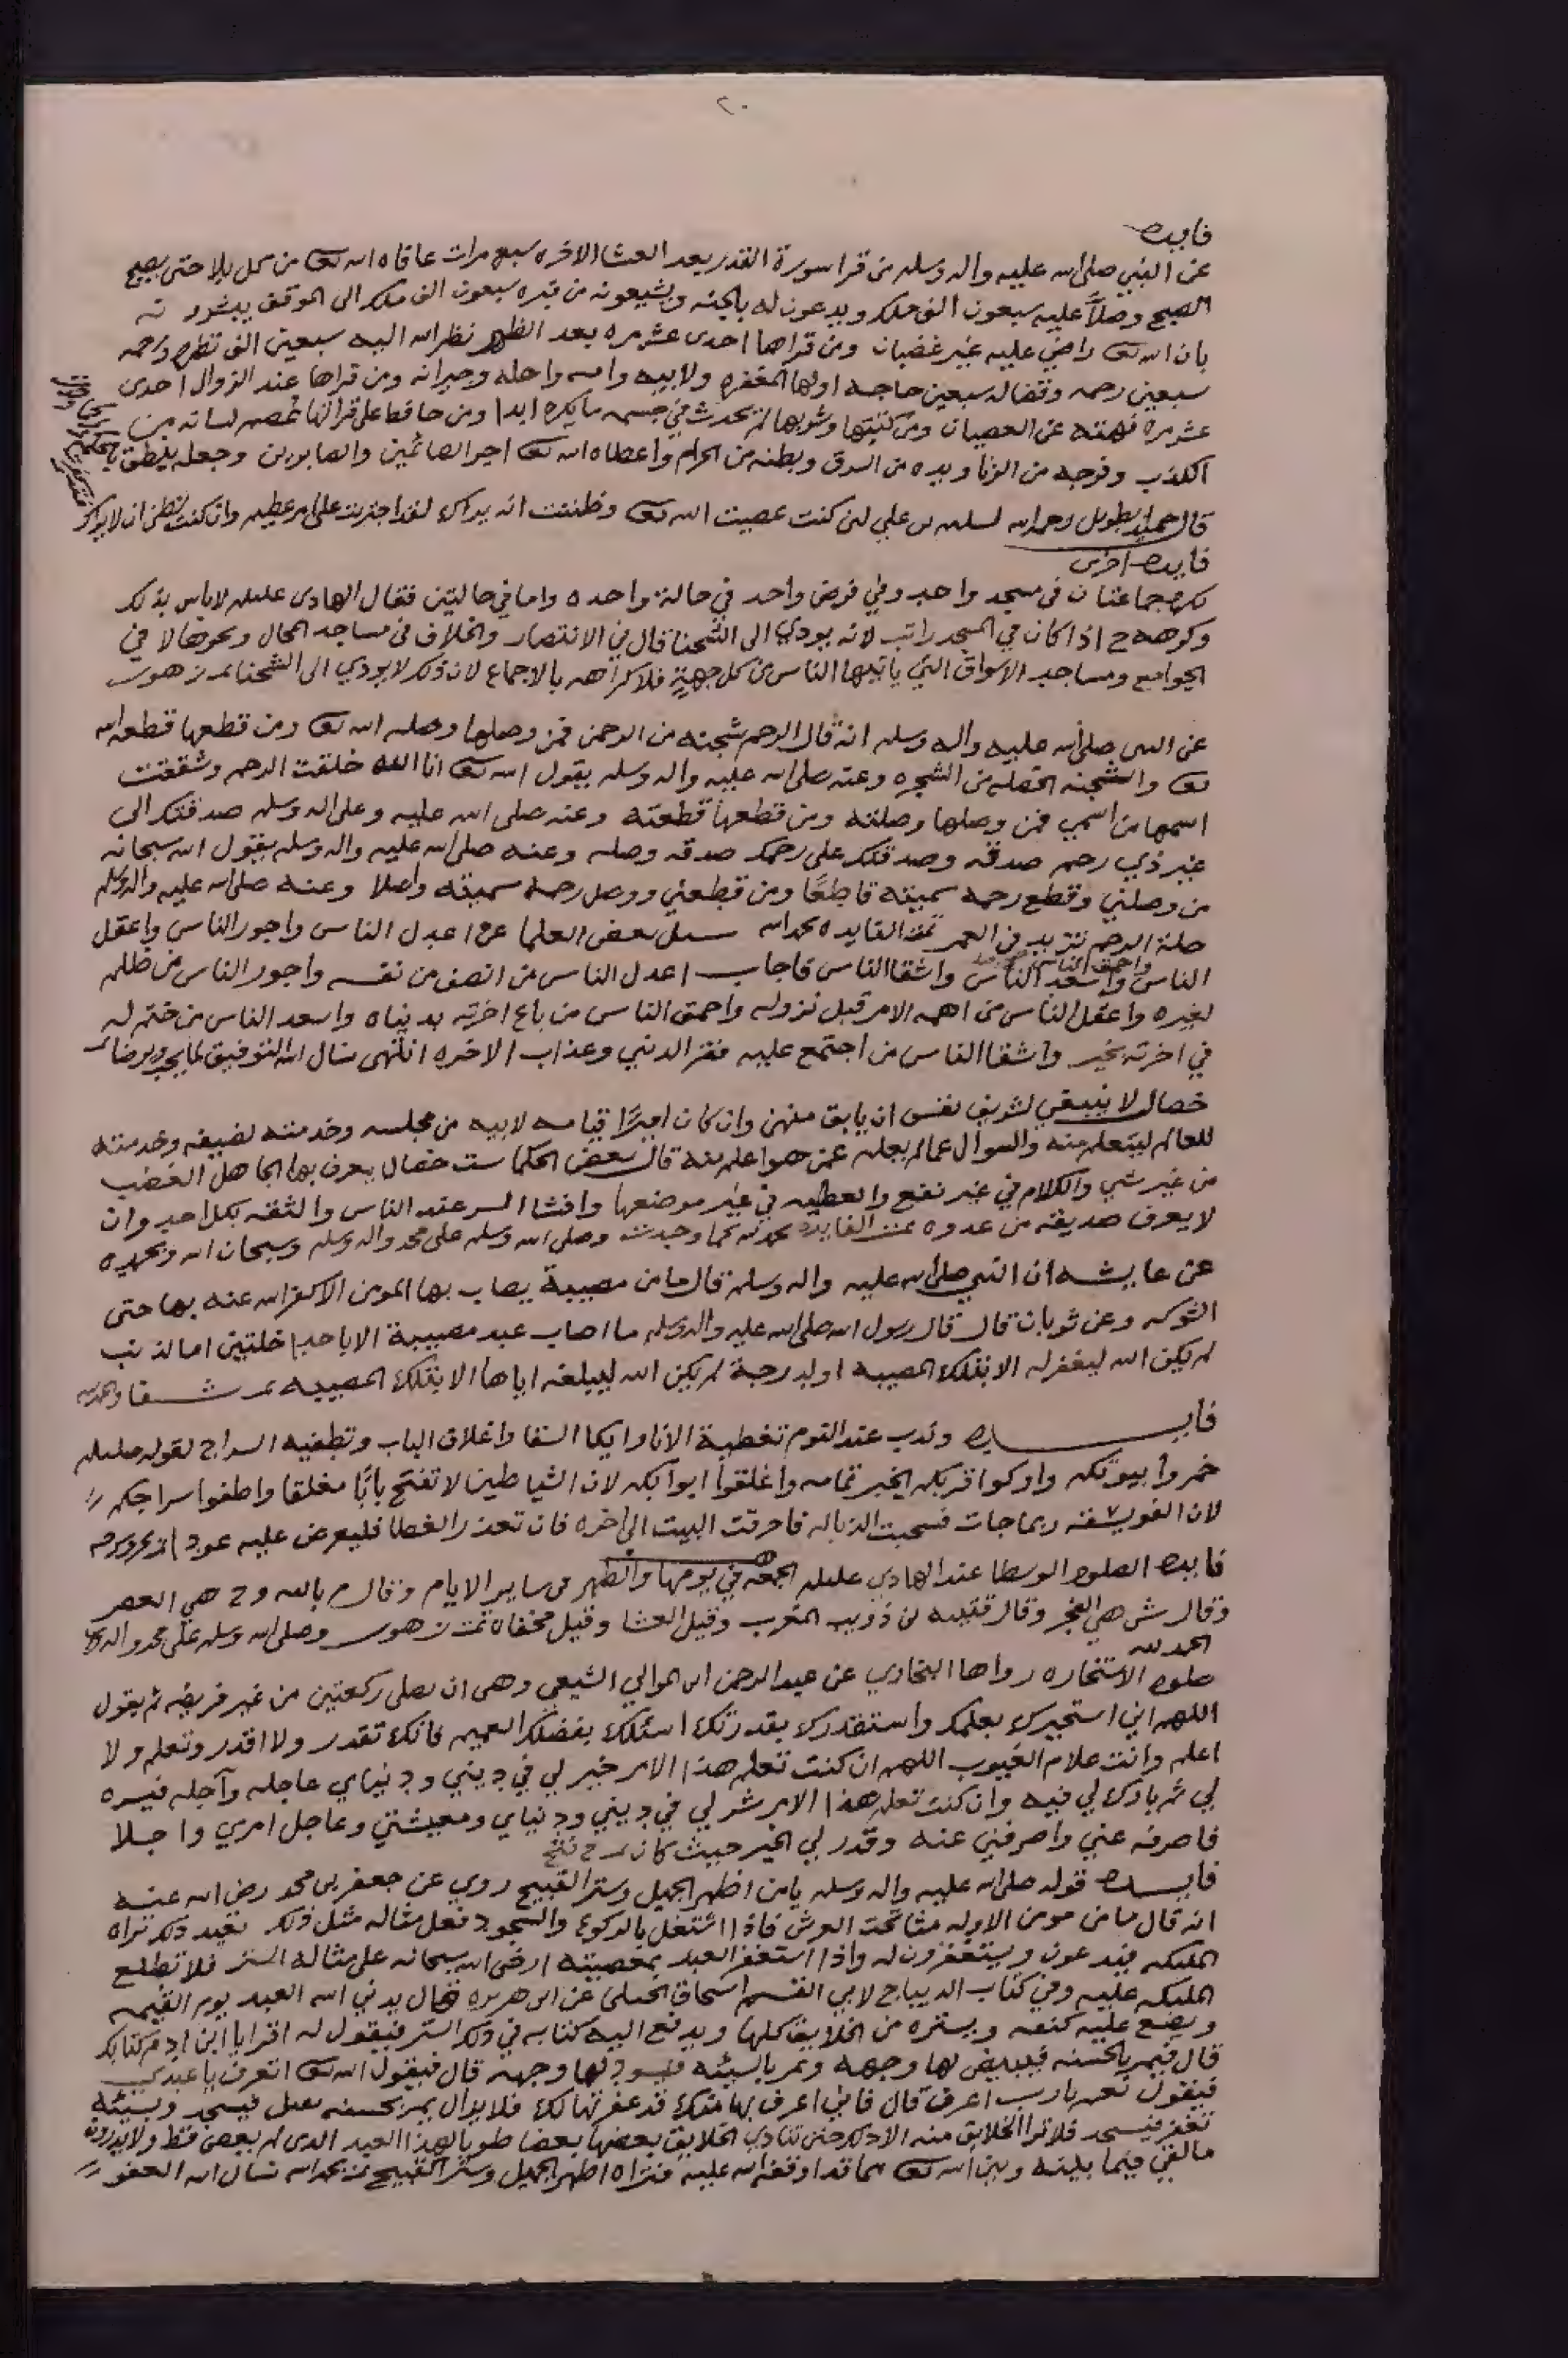 ٢٠
فايده
عن النبي صلى الله عليه واله وسلم من قرا سورة القدر بعد العشا الاخره سبع مرات عافاه الله تعالى من كل بلا حتى يصبح
الصبح وصلاً عليه سبعون الف ملك ويدعون له بالجنه ويشيعونه من قبره سبعون الف ملك الى الموقف يبشرونه
بان الله تعالى راضي عليه غير غضبان ومن قراها احدى عشر مره بعد الظهر نظر الله اليه سبعين الف نظره ورحمه
سبعين رحمه وقضا له سبعين حاجه اولها المغفره ولابيه وامه واهله وجيرانه ومن قراها عند الزوال احدى
عشر مره نهته عن العصيان ومن كتبها وشربها لم يحدث في جسمه ما يكره ابدا ومن حافظ على قرائتها عصم لسانه من
الكذب وفرجه من الزنا ويده من السرق وبطنه من الحرام واعطاه الله تعالى اجر الصائمين والصابرين وجعله ينطق بالحكمه
قال حميد الطويل رحمه الله لسليمن بن علي لئن كنت عصيت الله تعالى وظننت انه يراك لقد اجتريت على امر عظيم وان كنت تظن انه لا يراك
فايده اخرى
تكره جماعتان في مسجد واحد وفي فرض واحد في حالة واحده واما في حالتين فقال الهادي عليلم لا باس بذلك
وكرهه ح اذا كان في المسجد راتب لانه يودي الى الشحنا قال في الانتصار والخلاف في مساجد المحال ونحوها لا في
الجوامع ومساجد الاسواق التي ياتيها الناس من كل جهةٍ فلا كراهه بالاجماع لان ذلك لا يودي الى الشحنا تمت زهور
عن النبي صلى الله عليه واله وسلم انه قال الرحم شجنه من الرحمن فمن وصلها وصله الله تعالى ومن قطعها قطعه الله
تعالى والشجنه الخصله من الشجره وعنه صلى الله عليه واله وسلم يقول الله تعالى انا الله خلقت الرحم وشققت
اسمها من اسمي فمن وصلها وصلته ومن قطعها قطعته وعنه صلى الله عليه وعلى اله وسلم صدقتك الى
غير ذي رحم صدقه وصدقتك على رحمك صدقه وصله وعنه صلى الله عليه واله وسلم يقول الله سبحانه
من وصلني وقطع رحمه سميته قاطعًا ومن قطعني ووصل رحمه سميته واصلا وعنه صلى الله عليه واله وسلم
صلة الرحم تزيد في العمر تمت الفايده بحمد الله سئل بعض العلما عن اعدل الناس واجور الناس واعقل
الناس واحمق الناس واسعد الناس واشقا الناس فاجاب اعدل الناس من انصف من نفسه واجور الناس من ظلم
لغيره واعقل الناس من اهمه الامر قبل نزوله واحمق الناس من باع اخرته بدنياه واسعد الناس من ختم له
في اخرته بخير واشقا الناس من اجتمع عليه فقر الدنيى وعذاب الاخره انتهى نسال الله التوفيق لما يحب ويرضا تمت
خصال لا ينبغي لشريف نفس ان يابق منهن وان كان اميرًا قيامه لابيه من مجلسه وخدمته لضيفه وخدمته
للعالم ليتعلم منه والسوال عما لم يعلم عمن هو اعلم منه قال بعض الحكما ست خصال يعرف بها الجاهل الغضب
من غير شي والكلام في غير نفع والعطيه في غير موضعها وافشا السر عند الناس والثقه بكل احد وان
لا يعرف صديقه من عدوه تمت الفايده بحمد الله كما وجدت وصلى الله وسلم على محمد واله وسلم وسبحان الله وبحمده
عن عايشه ان النبي صلى الله عليه واله وسلم قال ما من مصيبة يصاب بها المومن الا كفر الله عنه بها حتى
الشوكه وعن ثوبان قال قال رسول الله صلى الله عليه واله وسلم ما اصاب عبد مصيبة الا باحد خلتين اما لذنب
لم يكن الله ليغفر له الا بتلك المصيبه او لدرجة لم يكن الله ليبلغه اياها الا بتلك المصيبه تمت شفا والحمد لله
فايده وندب عند النوم تغطية الانا وايكا السقا واغلاق الباب وتطفيه السراج لقوله صلعليلم
خمروا بيوتكم واوكوا قربكم الخبر تمامه واغلقوا ابوابكم لان الشياطين لا تفتح بابًا مغلقا واطفوا سراجكم
لان الفويسقه ربما جات فسحبت الذباله فاحرقت البيت الى اخره فان تعذر الغطا فليعرض عليه عود
فايده الصلوه الوسطا عند الهادي عليلم الجمعه في يومها والظهر من ساير الايام وقال م بالله وح هي العصر
وقال ش هي الفجر وقال قتيبه بن ذويب المغرب وقيل العشا وقيل مخفاه تمت زهور وصلى الله وسلم على محمد واله
الحمد لله
صلوه الاستخاره رواها البخاري عن عبد الرحمن ابن الموالي الشيعي وهي ان يصلي ركعتين من غير فريضه ثم يقول
اللهم اني استخيرك بعلمك واستقدرك بقدرتك اسئلك بفضلك العميم فانك تقدر ولا اقدر وتعلم ولا
اعلم وانت علام الغيوب اللهم ان كنت تعلم هذا الامر خير لي في ديني ودنياي عاجله وآجله فيسره
لي ثم بارك لي فيه وان كنت تعلم هذا الامر شر لي في ديني ودنياي ومعيشتي وعاجل امري واجلا
فاصرفه عني واصرفني عنه وقدر لي الخير حيث كان تمت
فايده قوله صلى الله عليه واله وسلم يا من اظهر الجميل وستر القبيح روي عن جعفر بن محمد رضي الله عنه
انه قال ما من مومن الا وله مثا تحت العرش فاذا اشتغل بالركوع والسجود فعل مثاله مثل ذلك فعند ذلك تراه
الملئكه فيدعون ويستغفرون له واذا استغفر العبد بمعصيته ارخى الله سبحانه على مثاله الستر فلا تطلع
الملئكه عليه وفي كتاب الديباج لابي القسم اسحاق الختلي عن ابي هريره قال يدني الله العبد يوم القيمه
ويضع عليه كنفه ويستره من الخلايق كلها ويدفع اليه كتابه في ذلك الستر فيقول له اقرا يا ابن ادم كتابك
قال فيمر بالحسنه فيبيض لها وجهه ويمر بالسيئه فيسود لها وجهه قال فيقول الله تعالى اتعرف يا عبدي
فيقول نعم يا رب اعرف قال فاني اعرف بها منك قد غفرتها لك فلا يزال يمر بحسنه تقبل فيسجد وبسيئه
تغفر فيسجد فلا ترا الخلايق منه الا ذلك حتى تنادي الخلايق بعضها بعضا طوبا لهذا العبد الذي لم يعص قط ولا يدرون
ما لقي فيما بينه وبين الله تعالى مما قد اوقفه الله عليه فنراه اظهر الجميل وستر القبيح تمت بحمد الله نسال الله العفو